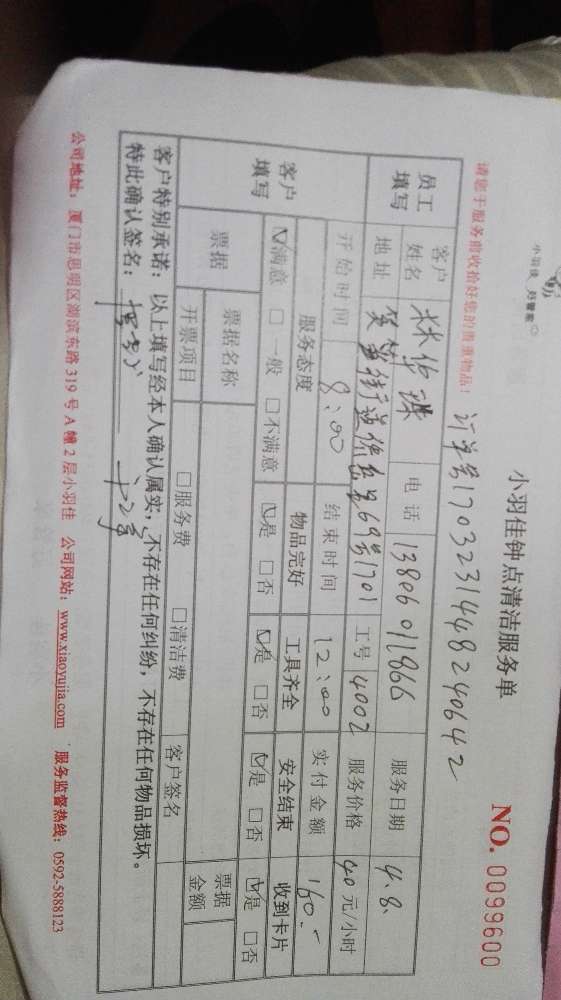 小羽佳 好管家
小羽佳钟点清洁服务单
NO. 0099600
请您于服务前收拾好您的贵重物品！
订单号170323144824064 2
员工填写 客户姓名 林华 电话 13806011866 服务日期 4.8.
地址 69号1701 工号 4002 服务价格 40元/小时
客户填写 开始时间 8:00 结束时间 12:00 实付金额 160.-
服务态度 物品完好 工具齐全 安全结束 收到卡片
☑满意 □一般 □不满意 ☑是 □否 ☑是 □否 ☑是 □否 ☑是 □否
票据 票据名称 票据金额
开票项目 □服务费 □清洁费 客户签名
客户特别承诺：以上填写经本人确认属实，不存在任何纠纷，不存在任何物品损坏。
特此确认签名：
公司地址：厦门市思明区湖滨东路 319 号 A 幢 2 层小羽佳 公司网站：www.xiaoyujia.com 服务监督热线：0592-5888123